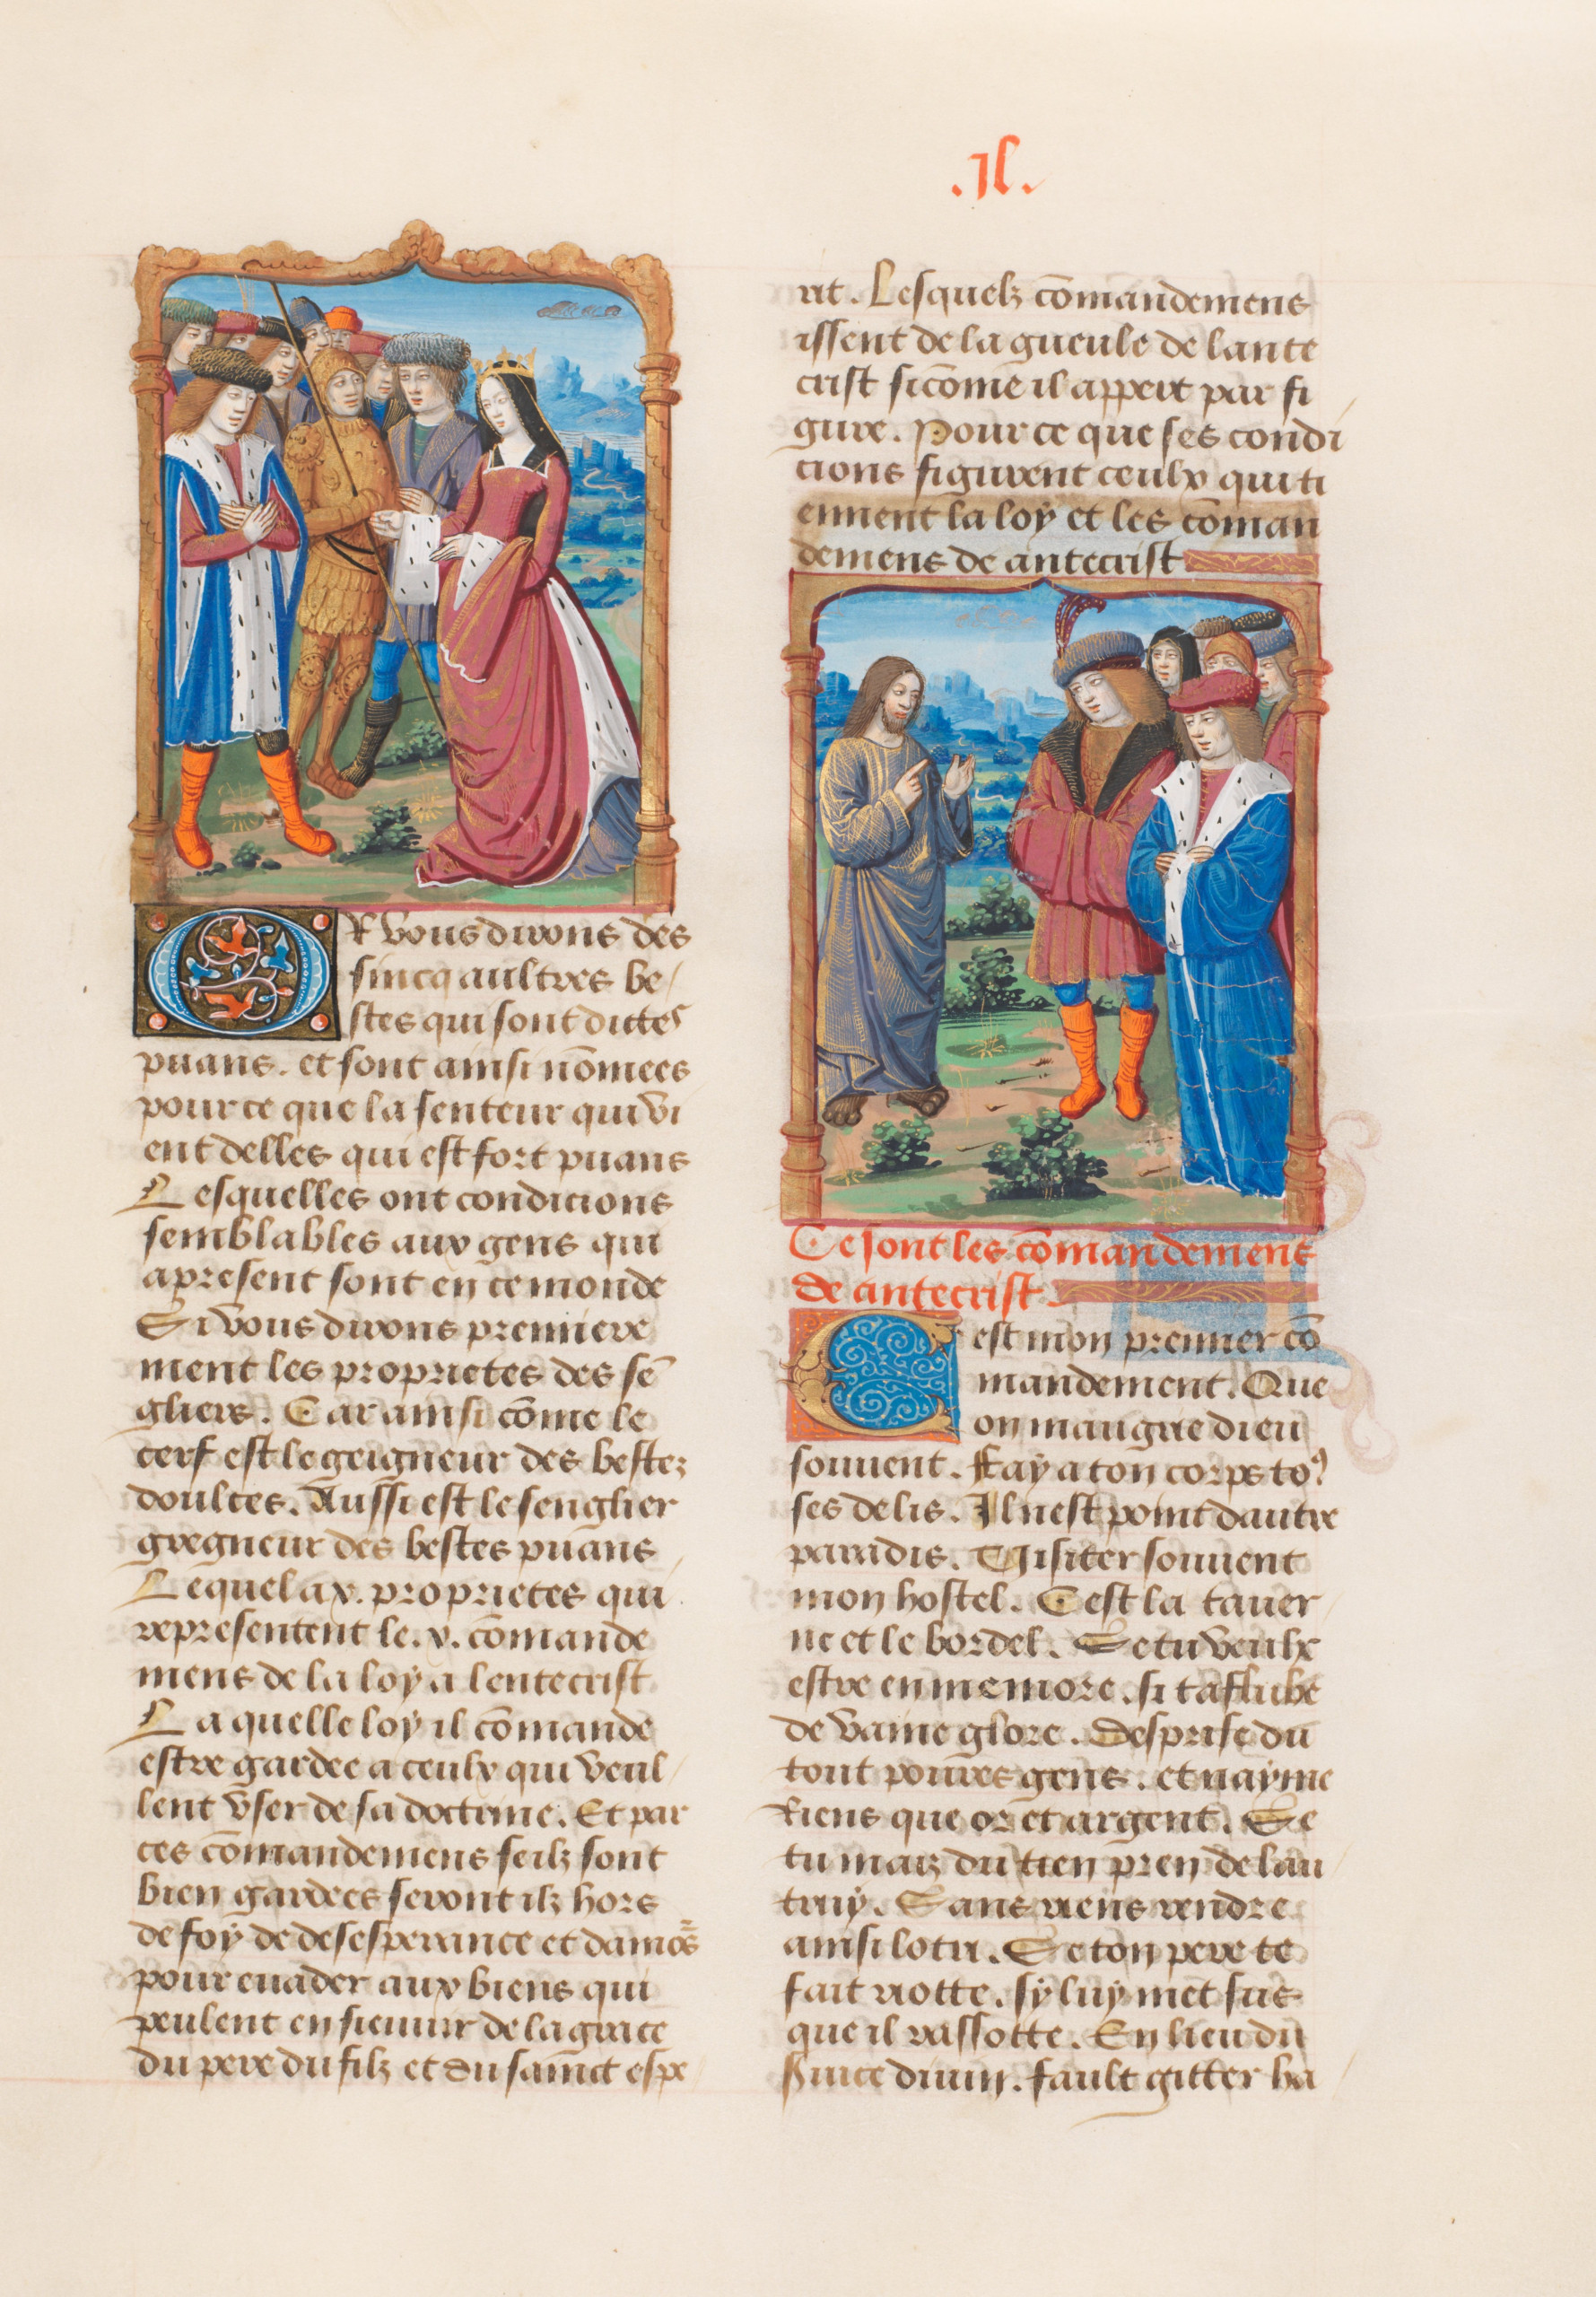 .xl.
OR vous dirons des
sincq aultres be/
stes qui sont dittes
puans. et sont ainsi nōmees
pour ce que la senteur qui vi
ent delles qui est fort puans
Lesquelles ont condicions
semblables aux gens qui
apresent sont en ce monde
Si vous dirons premiere
ment les proprietes des sē
gliers. Car ainsi cōme le
cerf est le greigneur des bestez
doulces. Aussi est le senglier
gregneur des bestes puans
Lequel a x. proprietes qui
representent le. x. cōmande
mens de la loy a lentecrist
La quelle loy il cōmande
estre gardee a ceulx qui veul/
lent vser de sa doctrine. Et par
ces cōmandemens seilz sont
bien gardees seront ilz hors
de foy de desesperance et damōs
pour euader aux biens qui
peulent ensieuuir de la grace
du pere du filz et du sainct espe
rit. Lesquelz cōmandemens
issent de la gueule de lante
crist sicōme il appert par fi
gure. Pour ce que ses condi
cions figurent ceulx qui ti
ennent la loy et les cōman
demens de antecrist
Ce sont les cōmandemens
de antecrist
C est mon premier cō
mandement. Que
on maugree dieu
souuent. Fay a ton corps to⁹
ses delis. Il nest point dautre
paradis. Visiter souuent
mon hostel. Cest la tauer
ne et le bordel. Se tu veulx
estre en memore. si taffube
de vaine glore. Desprise du
tout poures gens. et nayme
Riens que or et argent. Se
tu maiz du tien pren de lau
truy. Sans riens rendre
ainsi lotri. Se ton pere te
fait riotte. sy luy met sus
que il rassotte. En lieu du
seruice diuin. fault gitter ha